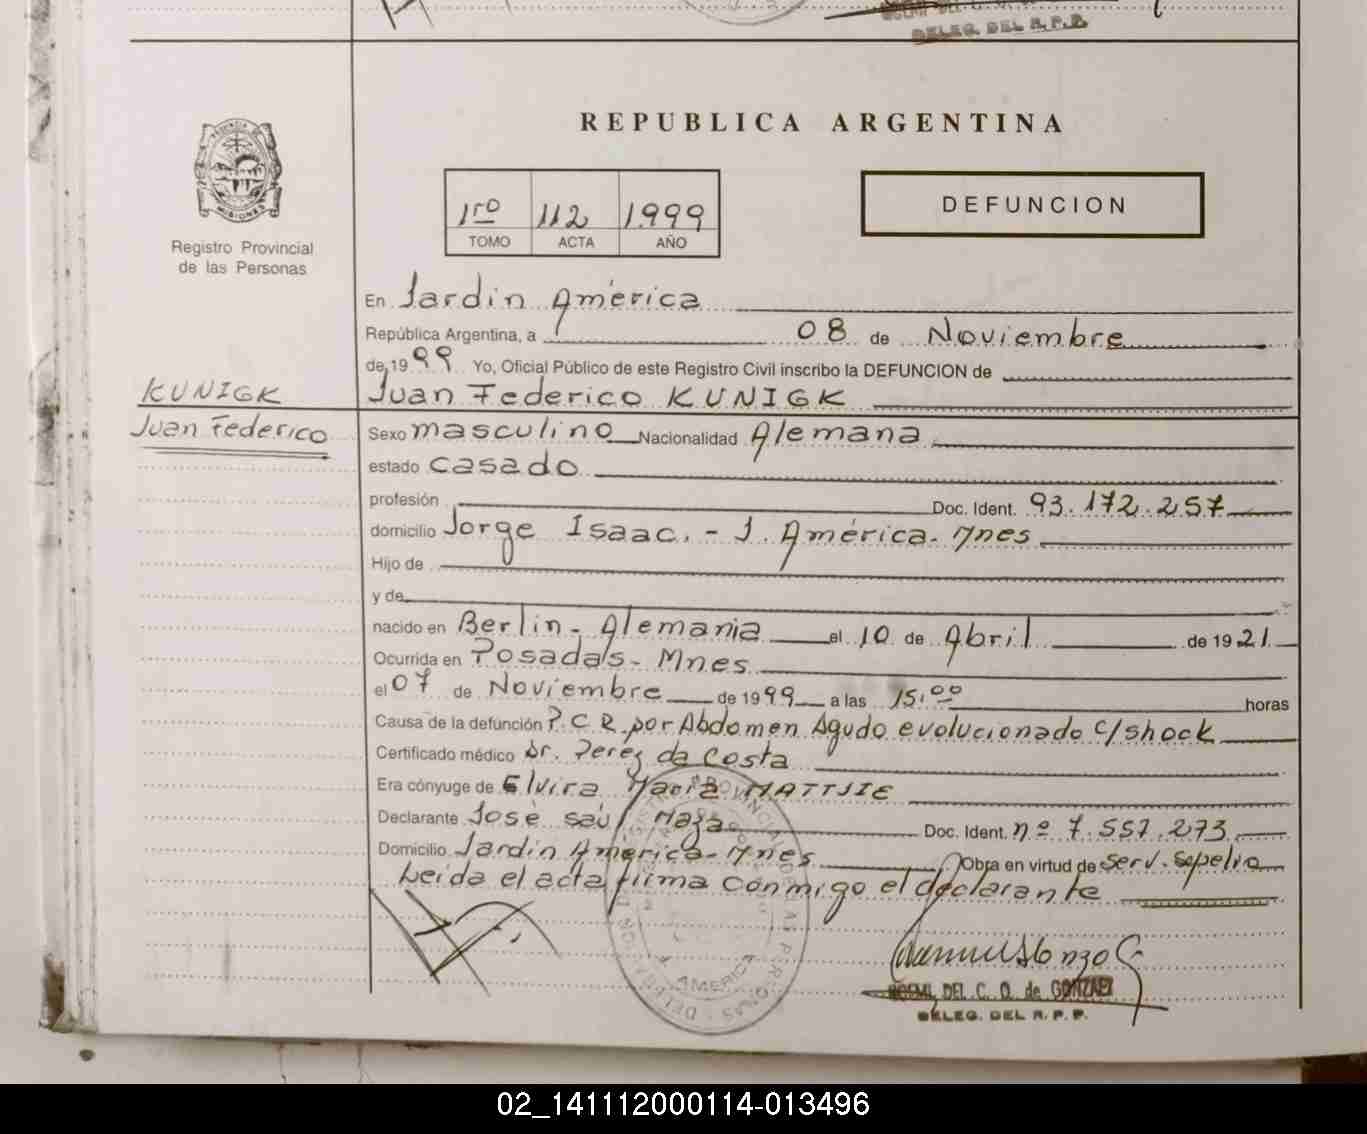 DELEG. DEL R. P. P.
REPUBLICA ARGENTINA
PROVINCIA DE
MISIONES
1ro 112 1999
TOMO ACTA AÑO
DEFUNCION
Registro Provincial
de las Personas
En Jardin América
República Argentina, a 08 de Noviembre
de 1999 Yo, Oficial Público de este Registro Civil inscribo la DEFUNCION de
KUNIGK
Juan Federico KUNIGK
Juan Federico
Sexo masculino Nacionalidad Alemana
estado casado
profesión Doc. Ident. 93.172.257
domicilio Jorge Isaac. - J. América - Mnes
Hijo de
y de
nacido en Berlin - Alemania el 10 de Abril de 1921
Ocurrida en Posadas - Mnes
el 07 de Noviembre de 1999 a las 15.00 horas
Causa de la defunción P.C.R. por Abdomen Agudo evolucionado c/shock
Certificado médico Dr. Perez da Costa
Era cónyuge de Elvira Maria MATTJIE
Declarante José Saúl Maza Doc. Ident. nº 7.557.273
Domicilio Jardin América - Mnes Obra en virtud de serv. sepelio
Leida el acta firma conmigo el declarante
AMERICA
DEL C. O. de GONZALEZ
DELEG. DEL R. P. P.
02_141112000114-013496